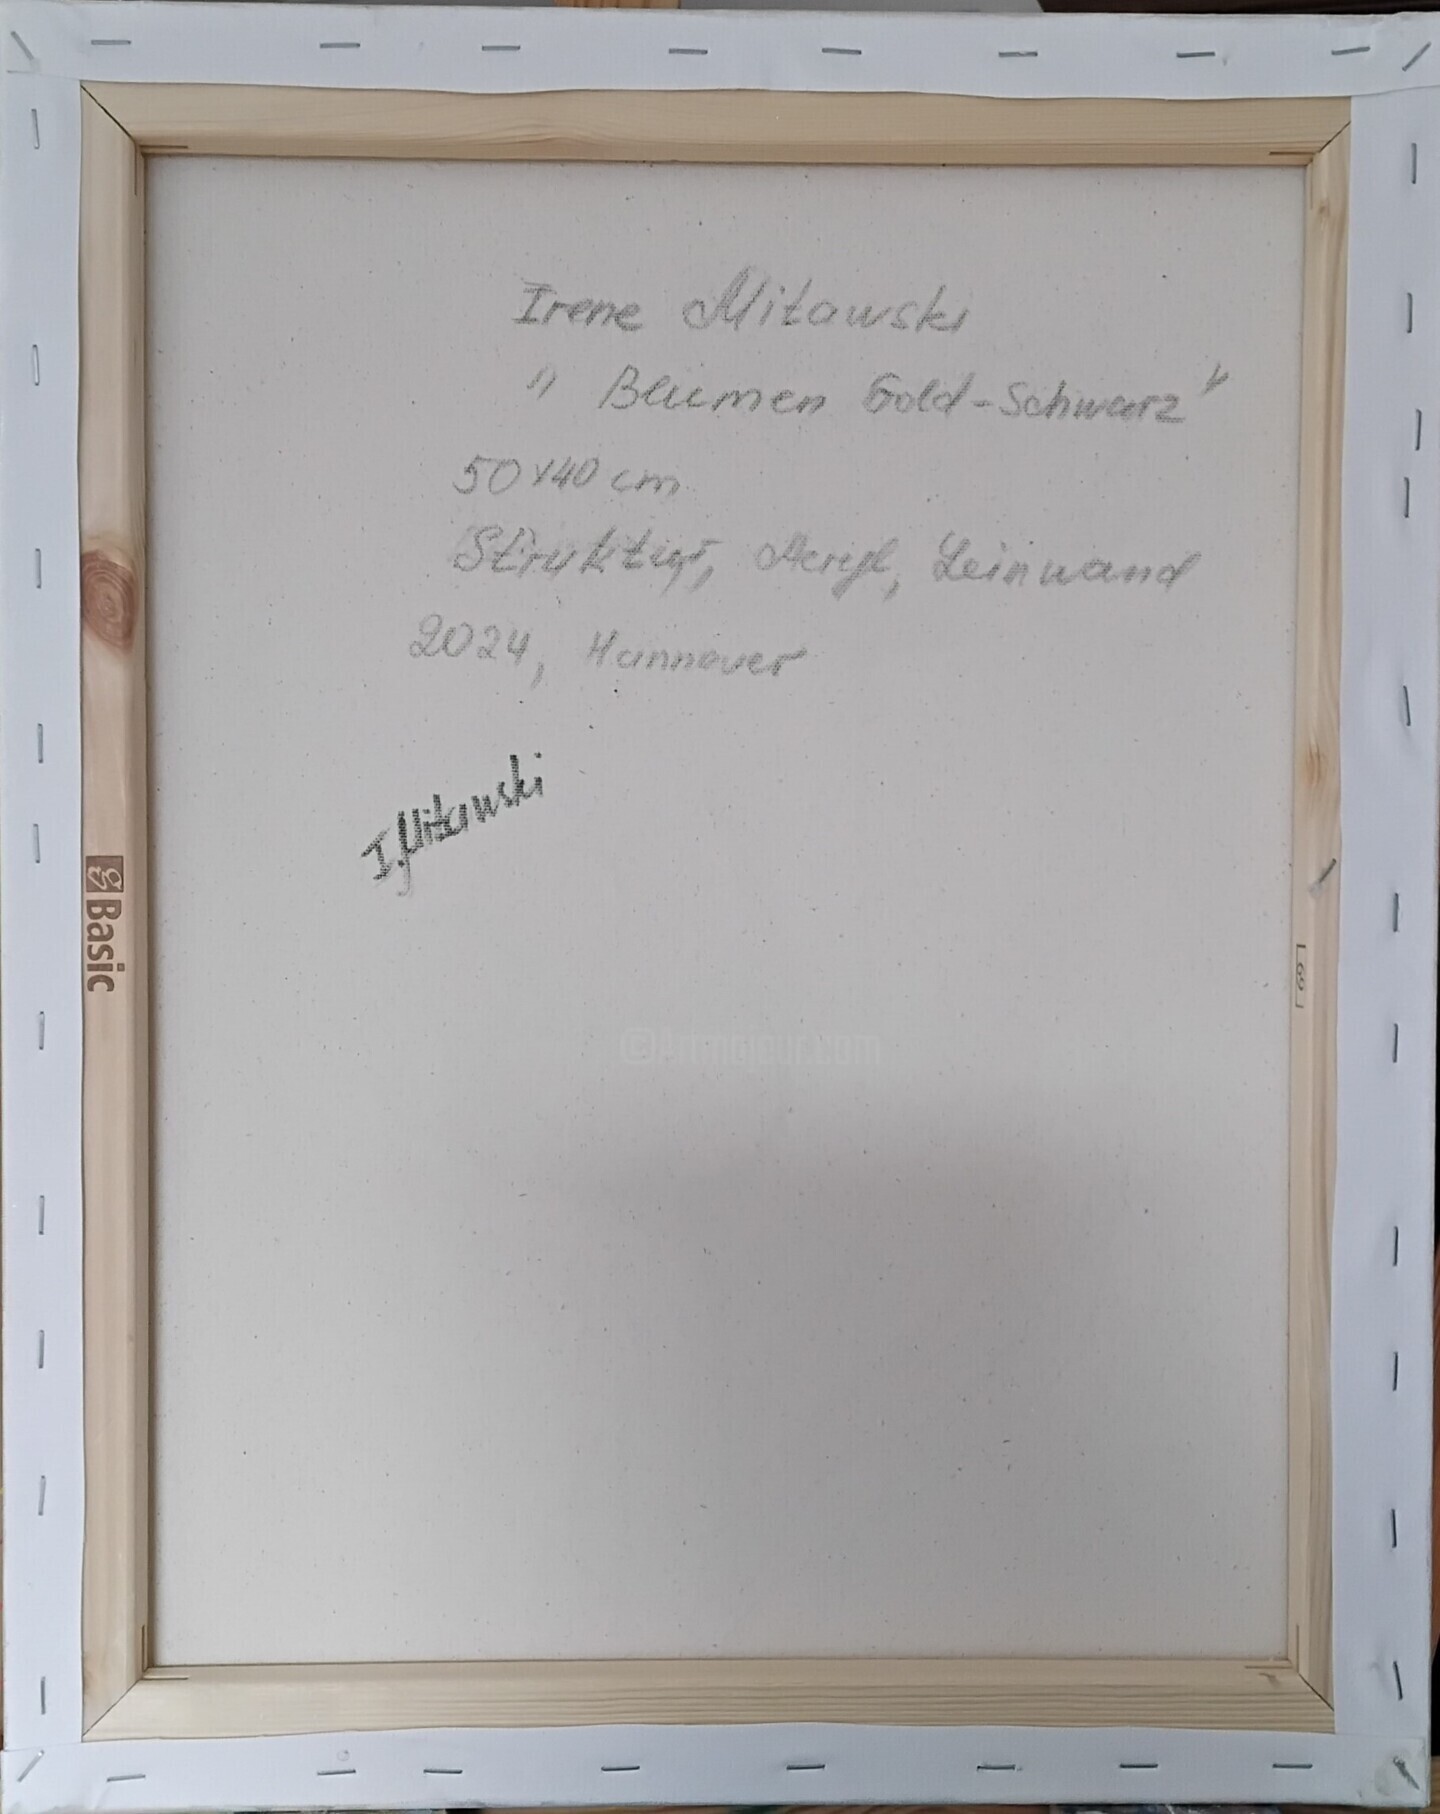 Irene Mitawski
" Blumen Gold-Schwarz"
50x40 cm
Struktur, Acryl, Leinwand
2024, Hannover
I. Mitawski
Basic
69